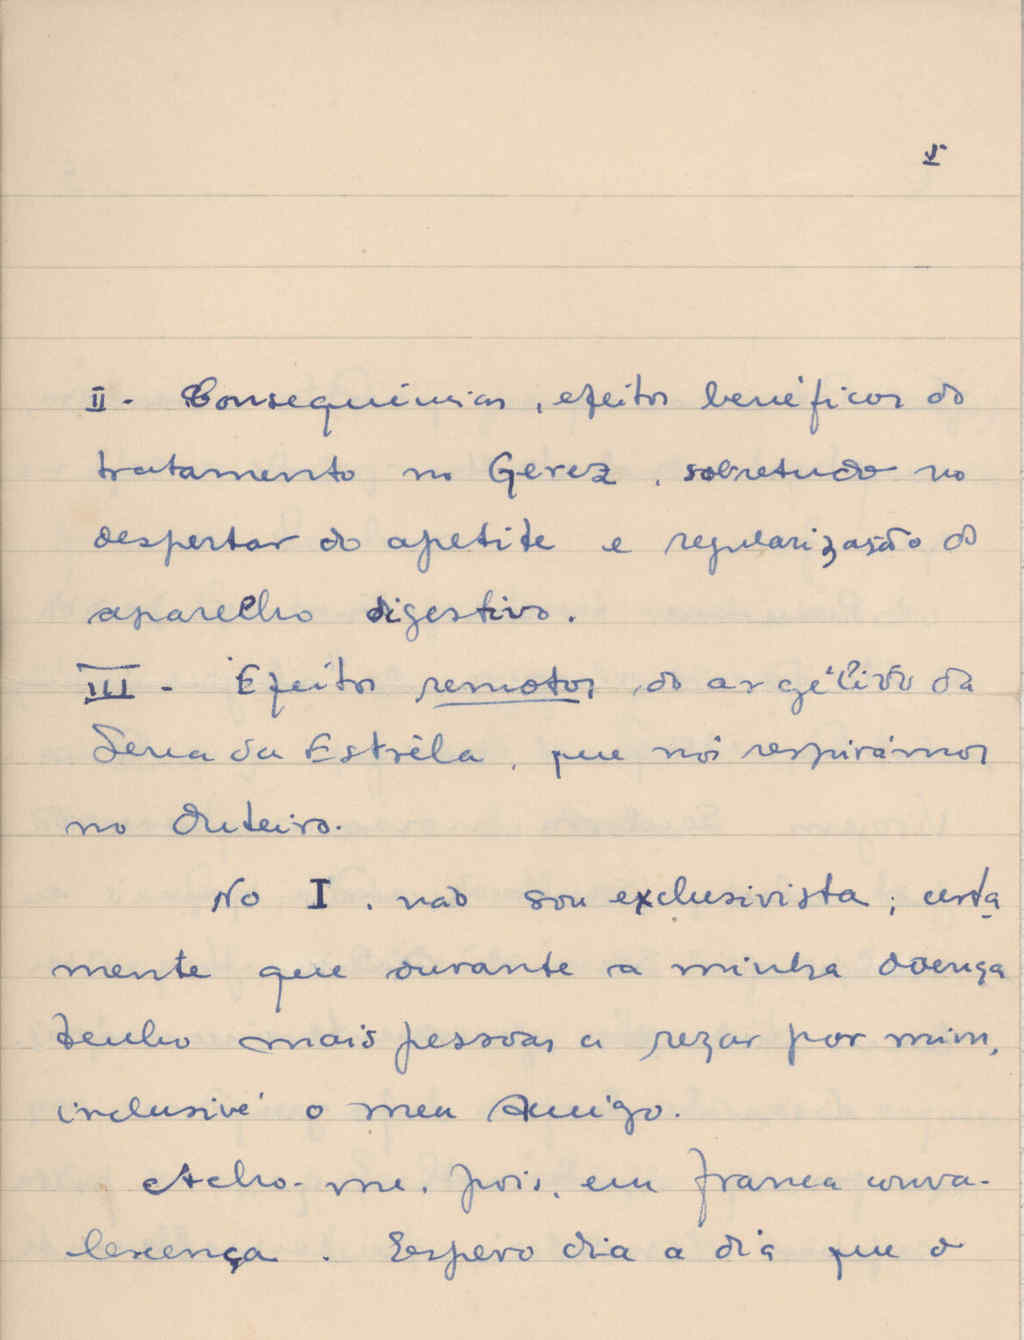 5
II - Consequências, efeitos benéficos do
tratamento no Gerez, sobretudo no
despertar do apetite e regularização do
aparelho digestivo.
III - Efeitos remotos, do ar gélido da
Serra da Estrêla, que nós respirámos
no Outeiro.
No I, não sou exclusivista; certa
mente que durante a minha doença
tenho mais pessoas a rezar por mim,
inclusivé o meu Amigo.
Acho-me, pois, em franca conva-
lescença. Espero dia a dia que o